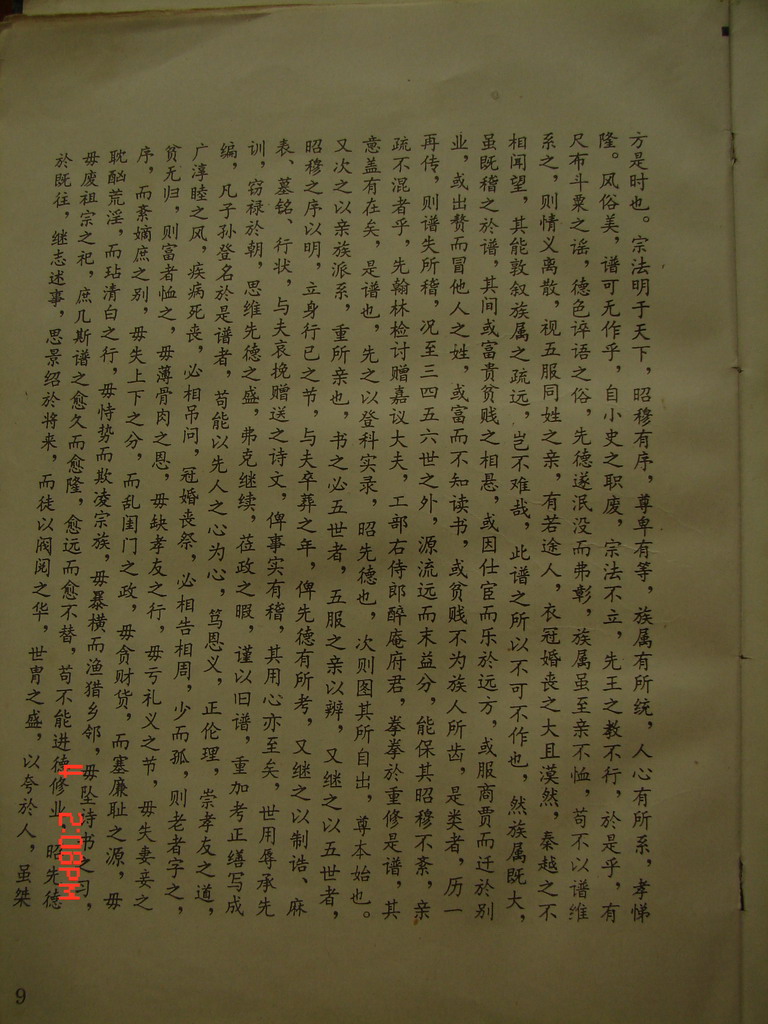 方是时也。宗法明于天下，昭穆有序，尊卑有等，族属有所统，人心有所系，孝悌
隆。风俗美，谱可无作乎，自小史之职废，宗法不立，先王之教不行，於是乎，有
尺布斗粟之谣，德色谇语之俗，先德遂泯没而弗彰，族属虽至亲不恤，苟不以谱维
系之，则情义离散，视五服同姓之亲，有若途人，衣冠婚丧之大且漠然，秦越之不
相闻望，其能敦叙族属之疏远，岂不难哉，此谱之所以不可不作也，然族属既大，
虽既稽之於谱，其间或富贵贫贱之相悬，或因仕宦而乐於远方，或服商贾而迁於别
业，或出赘而冒他人之姓，或富而不知读书，或贫贱不为族人所齿，是类者，历一
再传，则谱失所稽，况至三四五六世之外，源流远而末益分，能保其昭穆不紊，亲
疏不混者乎，先翰林检讨赠嘉议大夫，工部右侍郎醉庵府君，拳拳於重修是谱，其
意盖有在矣，是谱也，先之以登科实录，昭先德也，次则图其所自出，尊本始也。
又次之以亲族派系，重所亲也，书之必五世者，五服之亲以辨，又继之以五世者，
昭穆之序以明，立身行已之节，与夫卒葬之年，俾先德有所考，又继之以制诰、麻
表、墓铭、行状，与夫哀挽赠送之诗文，俾事实有稽，其用心亦至矣，世用辱承先
训，窃禄於朝，思维先德之盛，弗克继续，莅政之暇，谨以旧谱，重加考正缮写成
编，凡子孙登名於是谱者，苟能以先人之心为心，笃恩义，正伦理，崇孝友之道，
广淳睦之风，疾病死丧，必相吊问，冠婚丧祭，必相告相周，少而孤，则老者字之，
贫无归，则富者恤之，毋薄骨肉之恩，毋缺孝友之行，毋亏礼义之节，毋失妻妾之
序，而紊嫡庶之别，毋失上下之分，而乱闺门之政，毋贪财货，而塞廉耻之源，毋
耽酗荒淫，而玷清白之行，毋恃势而欺凌宗族，毋暴横而渔猎乡邻，毋坠诗书之习，
毋废祖宗之祀，庶几斯谱之愈久而愈隆，愈远而愈不替，苟不能进德修业，昭先德
於既往，继志述事，思景绍於将来，而徒以阀阅之华，世胄之盛，以夸於人，虽桀
9
4 2:08PM